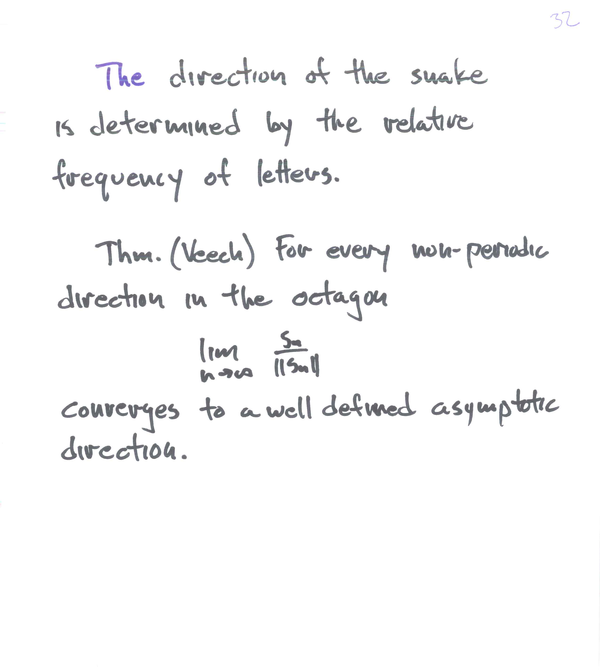 32
The direction of the snake
is determined by the relative
frequency of letters.
Thm. (Veech) For every non-periodic
direction in the octagon
lim n→∞ Sn/||Sn||
converges to a well defined asymptotic
direction.